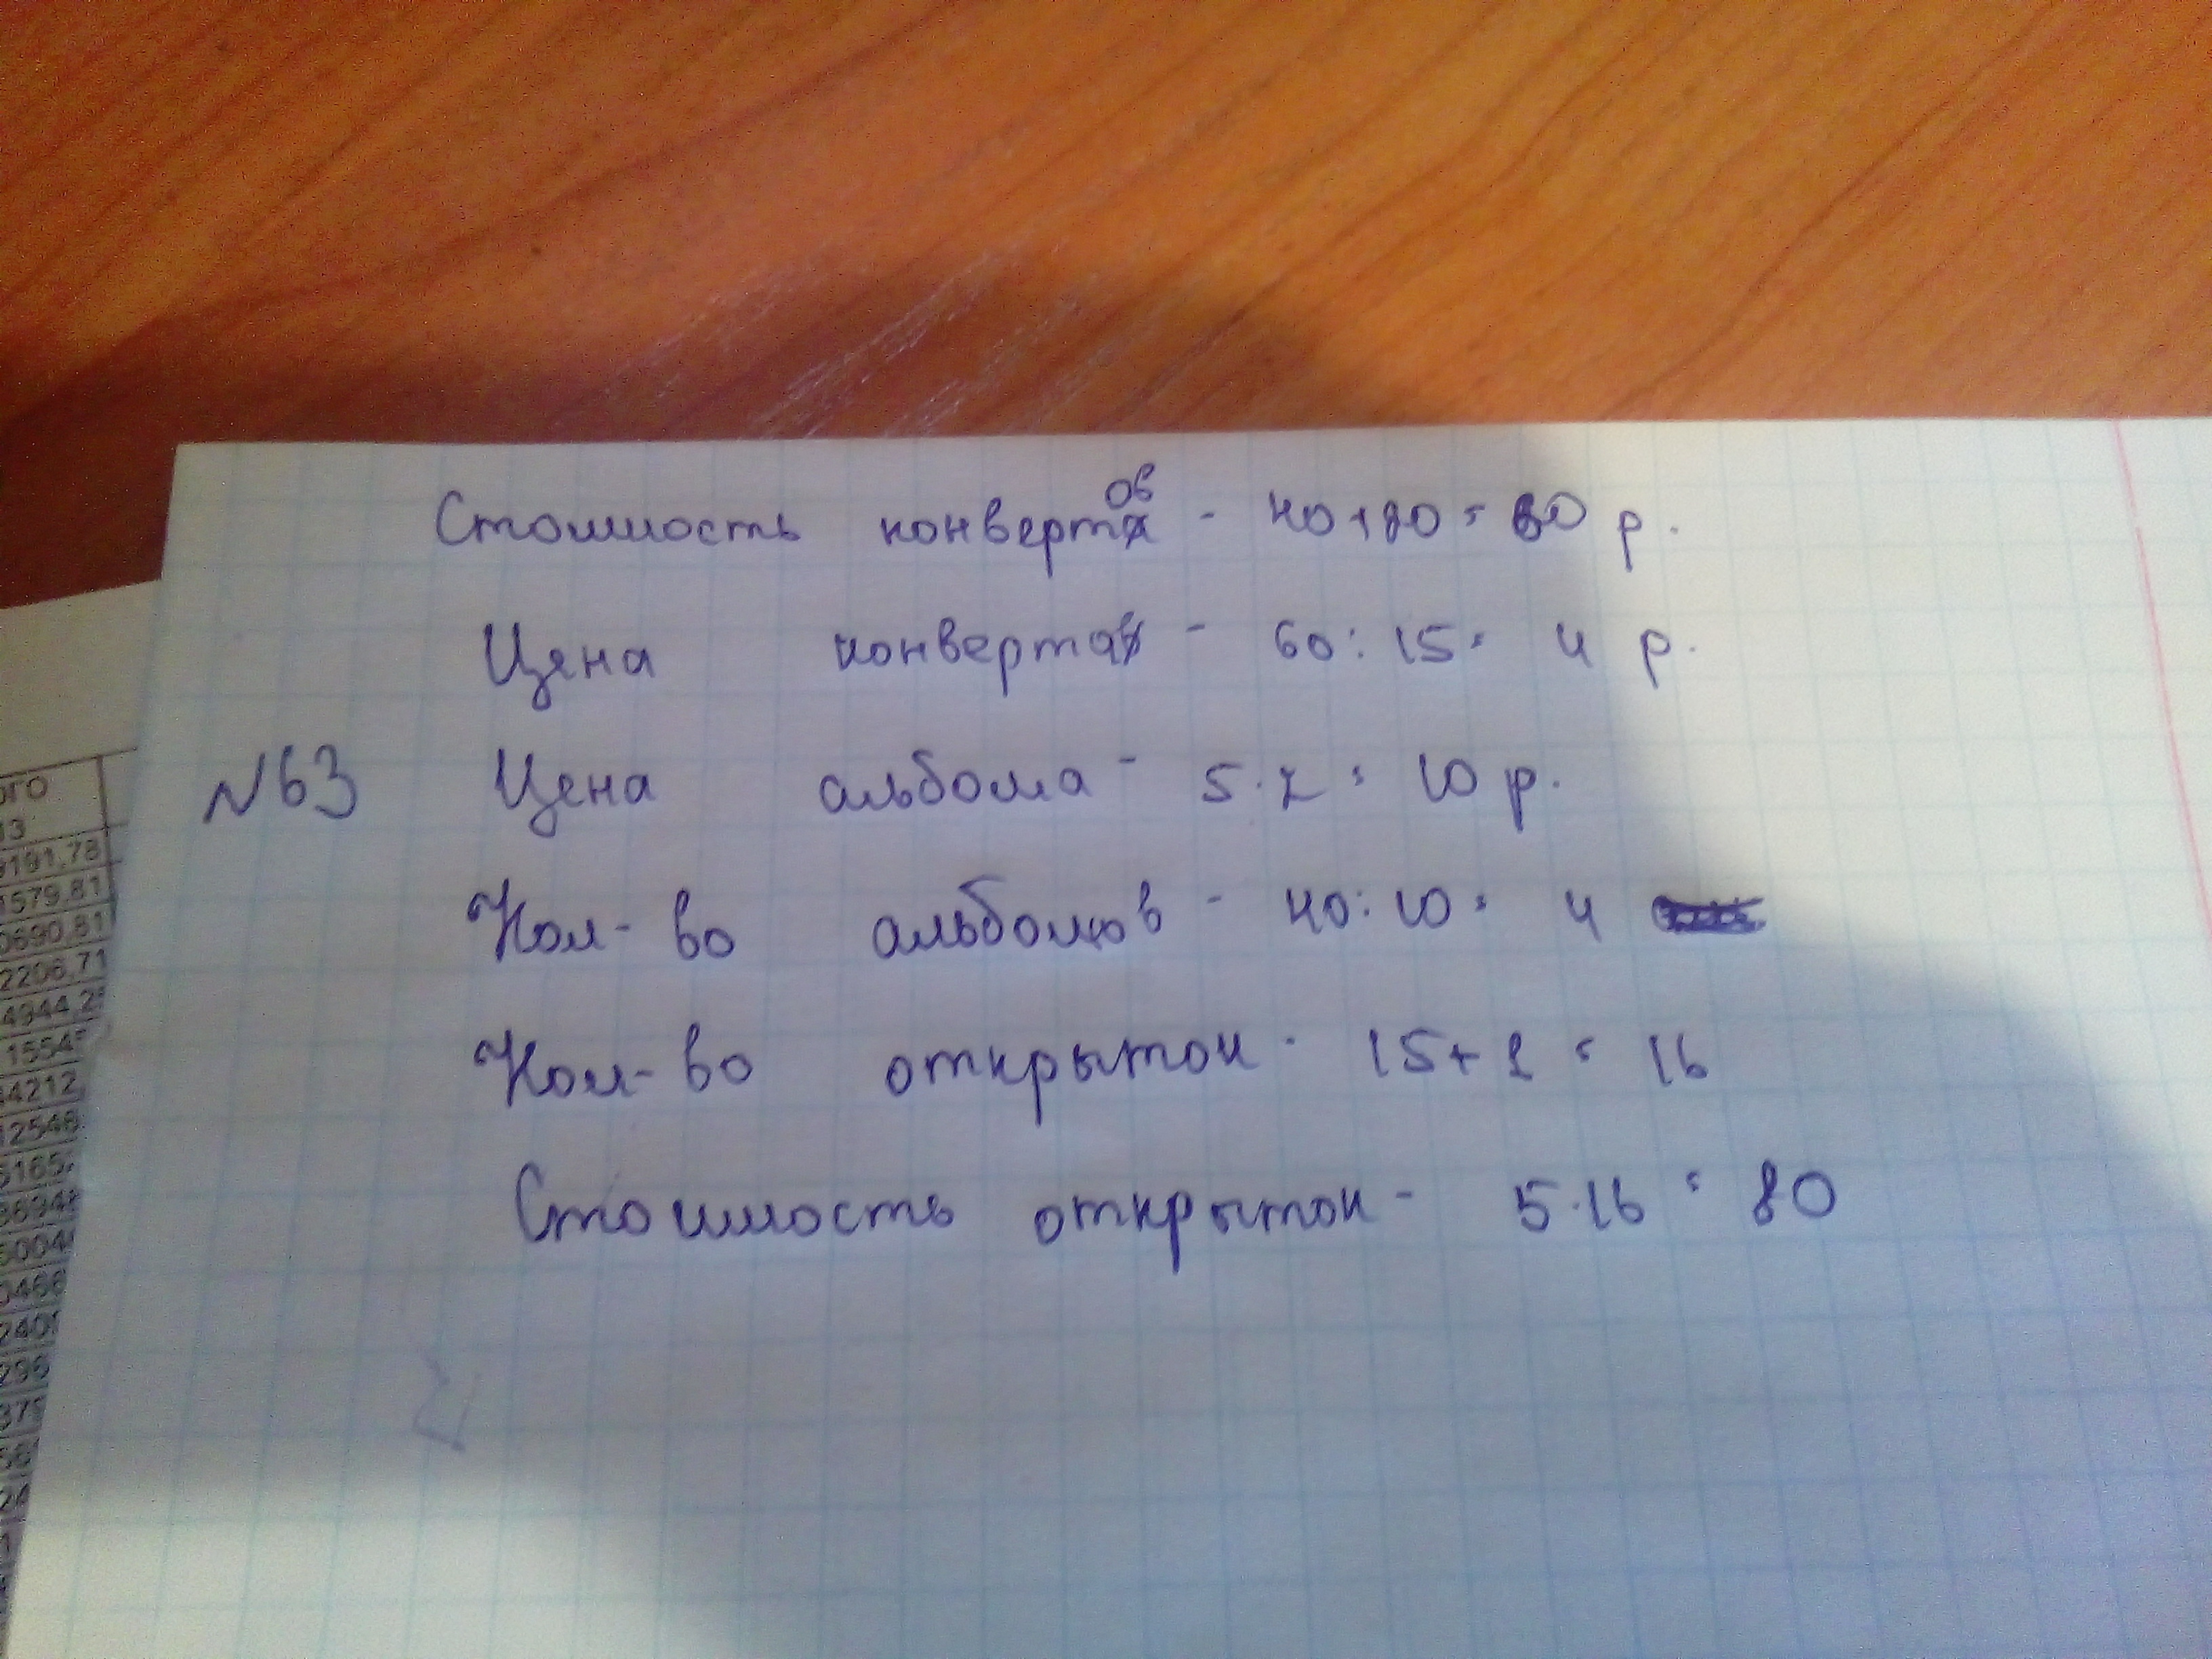 Стоимость конвертов - 40+20=60 р.
Цена конверта - 60:15= 4 р.
№63 Цена альбома - 5·2=10 р.
Кол-во альбомов - 40:10= 4
Кол-во открыток - 15+1=16
Стоимость открыток - 5·16=80
ого
13
9191,78
1579,81
0690,81
2206,71
4944,2
1554
44212
12548
5165
240
296